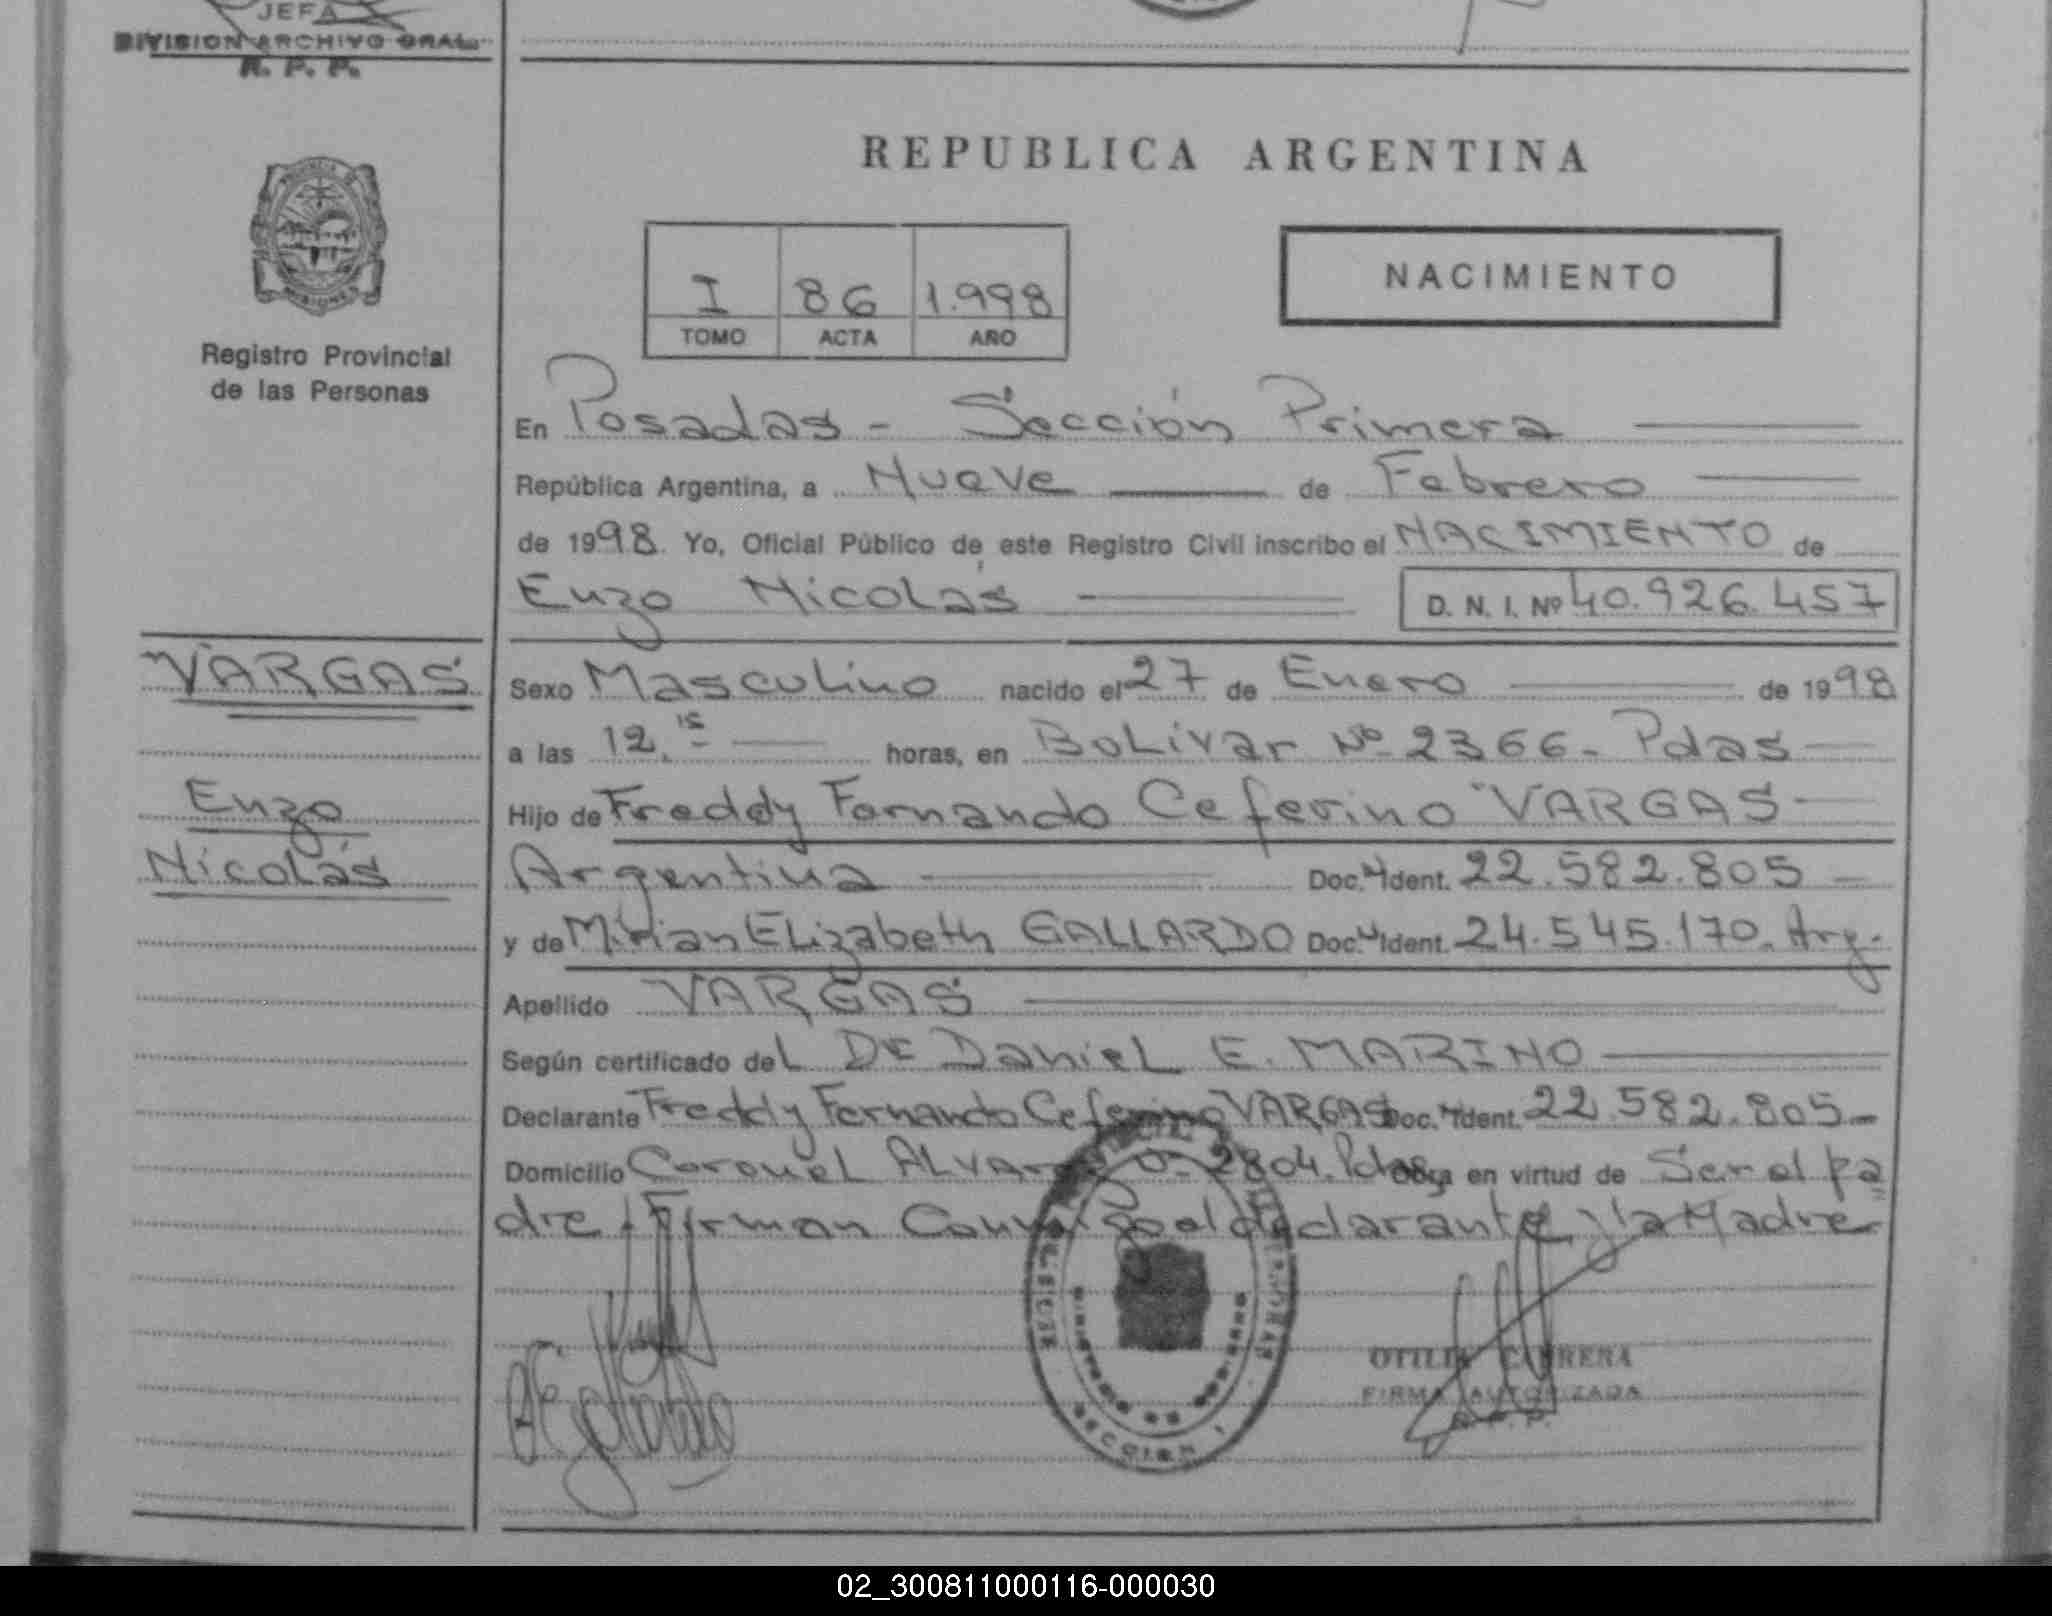 JEFA
DIVISION ARCHIVO GRAL.
R. P. P.
REPUBLICA ARGENTINA
I 86 1.998
TOMO ACTA AÑO
NACIMIENTO
MISIONES
Registro Provincial
de las Personas
En Posadas - Sección Primera
República Argentina, a Nueve de Febrero
de 1998. Yo, Oficial Público de este Registro Civil inscribo el NACIMIENTO de
Enzo Nicolás D. N. I. Nº 40.926.457
VARGAS
Sexo Masculino nacido el 27 de Enero de 1998
a las 12.15 horas, en Bolivar Nº 2366- Pdas
Enzo
Hijo de Freddy Fernando Ceferino VARGAS
Nicolás
Argentina Doc. Ident. 22.582.805
y de Mirian Elizabeth GALLARDO Doc. Ident. 24.545.170. Arg.
Apellido VARGAS
Según certificado del Dr Daniel E. MARINO
Declarante Freddy Fernando Ceferino VARGAS Doc. Ident. 22.582.805-
Domicilio Coronel Alvarez 2804. Pdas. Obra en virtud de Ser el pa
dre. Firman Conmigo el declarante y la Madre
OTILIA CABRERA
FIRMA AUTORIZADA
R. P. P.
SECCION 1
02_300811000116-000030